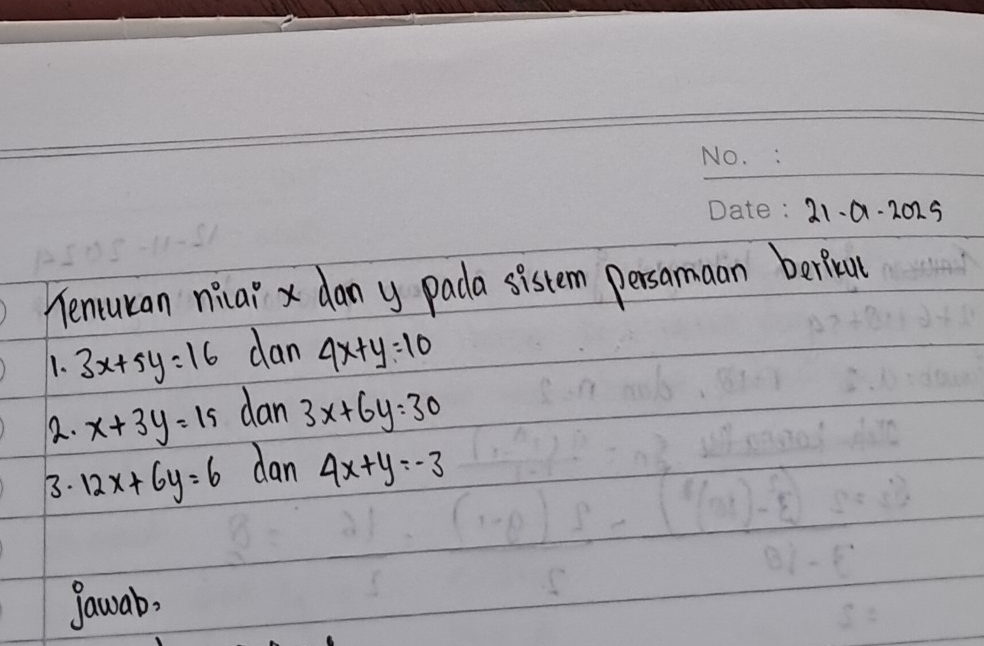 No. :
Date : 21-01-2025
Tentukan nilai x dan y pada sistem persamaan berikut
1. 3x+5y=16 dan 4x+y=10
2. x+3y=15 dan 3x+6y=30
3. 12x+6y=6 dan 4x+y=-3
jawab,